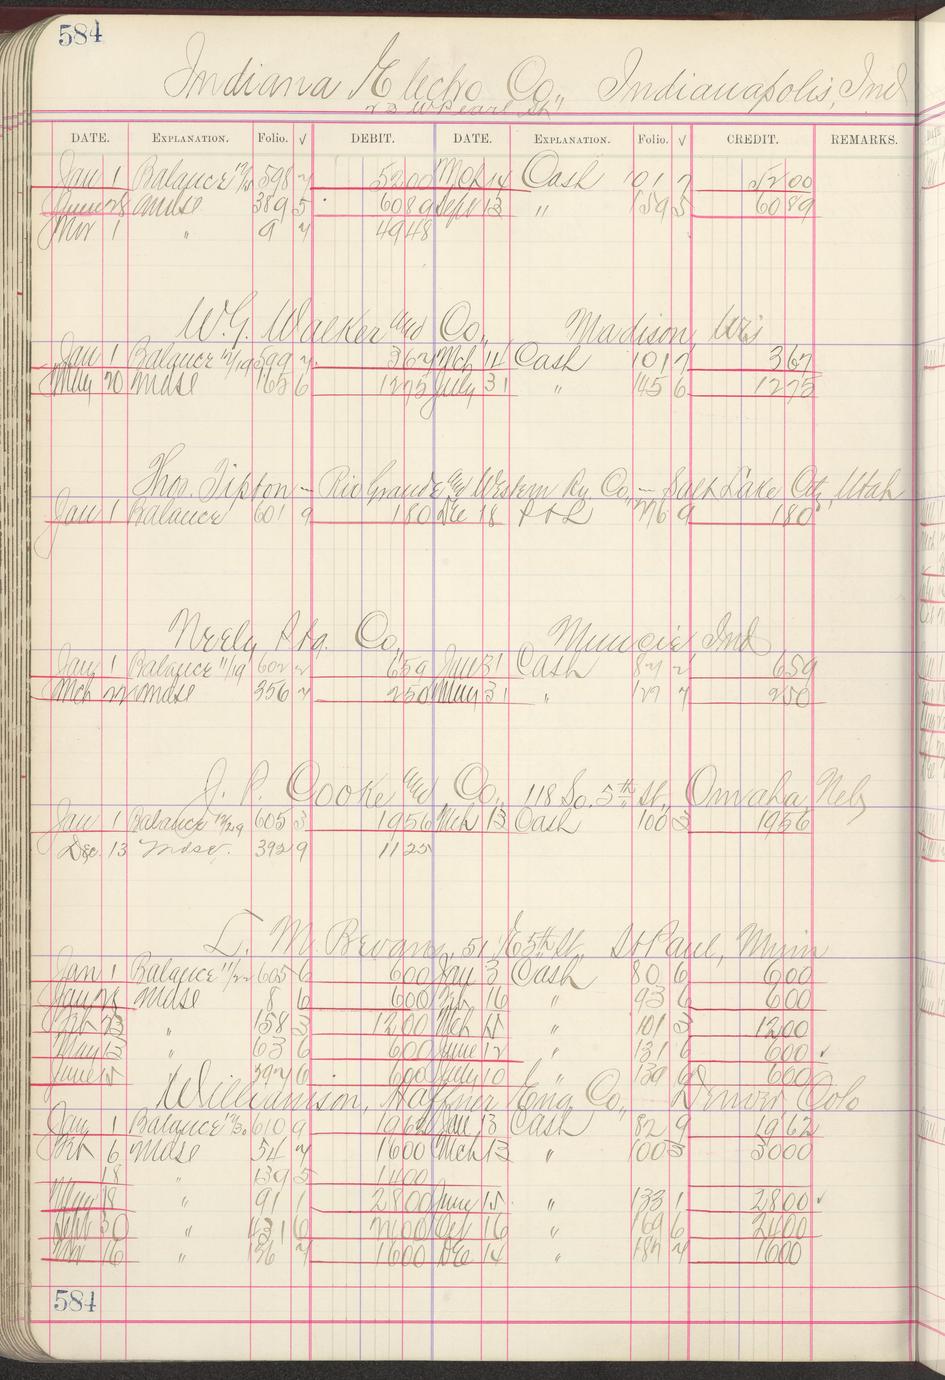 584
Indiana Electro Co., Indianapolis, Ind
23 W Pearl St
DATE. EXPLANATION. Folio. √ DEBIT. DATE. EXPLANATION. Folio. √ CREDIT. REMARKS.
Jan 1 Balance 598 5200 Mch 14 Cash 101 7 5200
Mdse 389 5 6089 Sept 13 " 159 5 6089
Nov 1 " 9 4948
W.G. Walker and Co., Madison, Wis
Jan 1 Balance 12/19 599 367 Mch 14 Cash 101 7 367
May 20 Mdse 6 1275 July 31 " 145 6 1275
Thos. Tipton — Rio Grande and Western Ry. Co., — Salt Lake City, Utah
Jan 1 Balance 601 9 180 Dec 18 P & L 276 9 180
Neely Ptg. Co., Muncie Ind
Jan 1 Balance 11/19 602 2 659 Jan 31 Cash 87 2 659
Mch 22 Mdse 356 7 250 May 31 " 127 7 250
J. P. Cooke and Co., 118 So. 5th St., Omaha, Neb
Jan 1 Balance 12/29 605 3 1956 Mch 13 Cash 100 3 1956
Dec. 13 Mdse. 392 9 1125
L. M. Bevans, 51 E 5th St., St Paul, Minn
Jan 1 Balance 11/22 605 6 600 Jan 3 Cash 80 6 600
Jan 28 Mdse 8 6 600 Feb 16 " 93 6 600
Feb 23 " 158 3 1200 Mch 15 " 101 3 1200
May 12 " 63 6 600 June 12 " 131 6 600 √
June 15 " 392 6 600 July 10 " 139 6 600
Williamson, Haffner Eng Co., Denver Colo
Jan 1 Balance 610 9 1962 Jan 13 Cash 82 9 1962
Feb 6 Mdse 54 1600 Mch 13 " 100 3 3000
18 " 139 5 1400
May 18 " 91 1 2800 June 15 " 133 1 2800 √
Sept 30 " 431 6 2400 Oct 16 " 169 6 2400
Nov 16 " 156 7 1600 Dec 14 " 187 7 1600
584